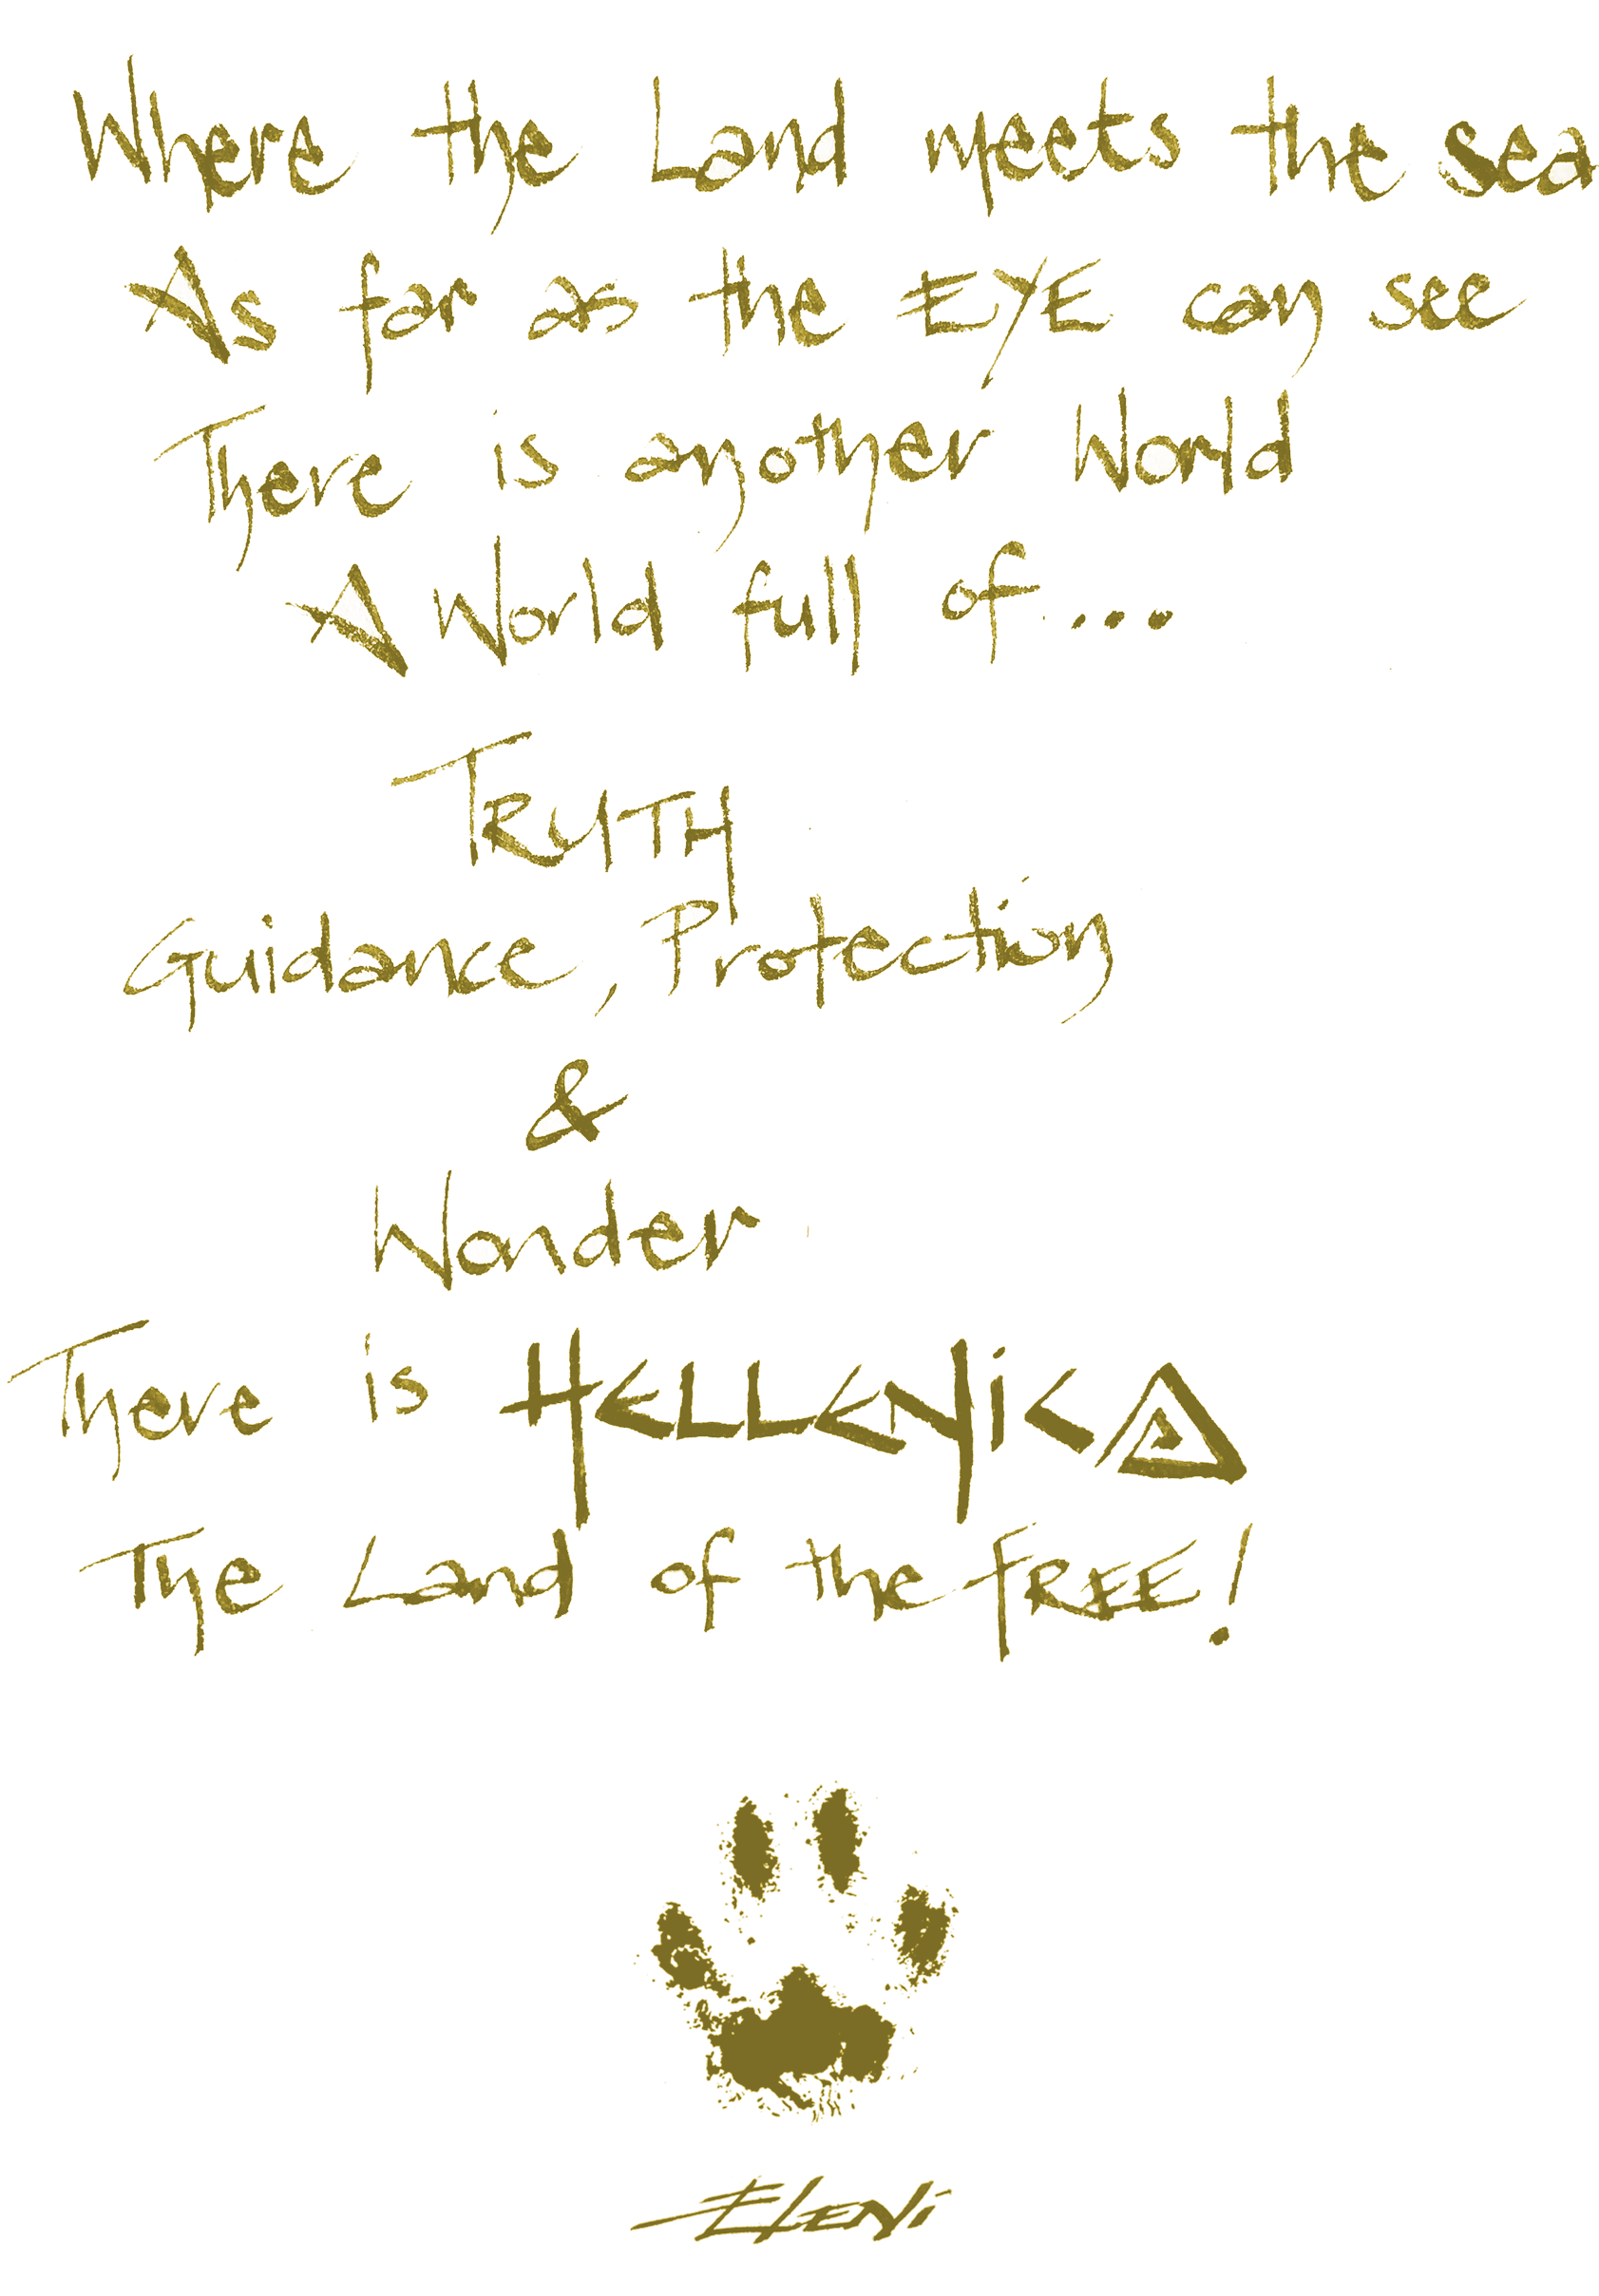 Where the Land meets the sea
As far as the EYE can see
There is another World
A World full of....
TRUTH
Guidance, Protection
&
Wonder
There is HELLENiKA
The Land of the FREE!
ELENi